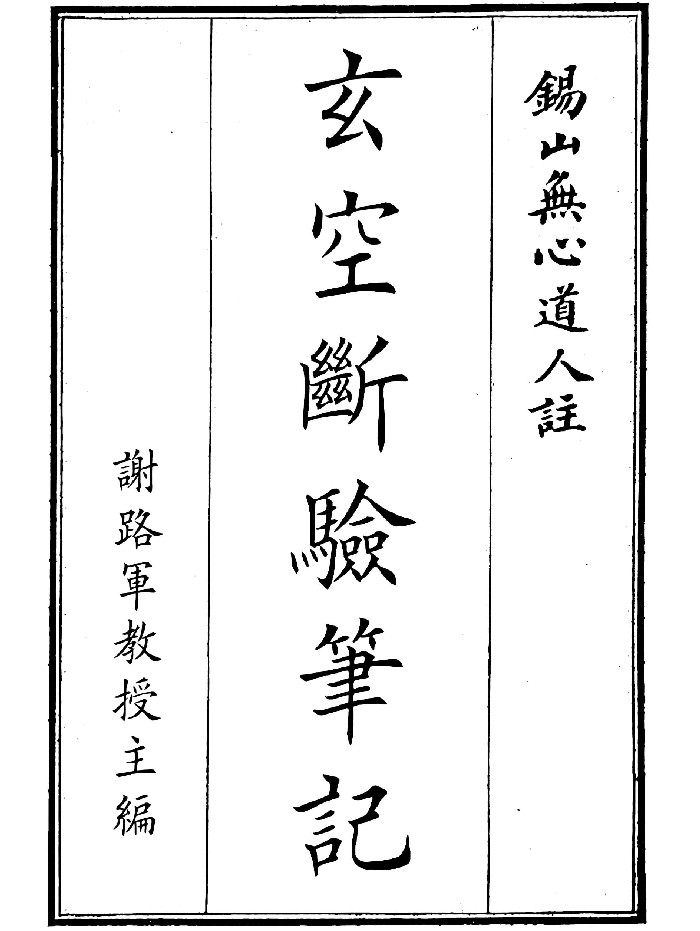 錫山無心道人註
玄空斷驗筆記
謝路軍教授主編